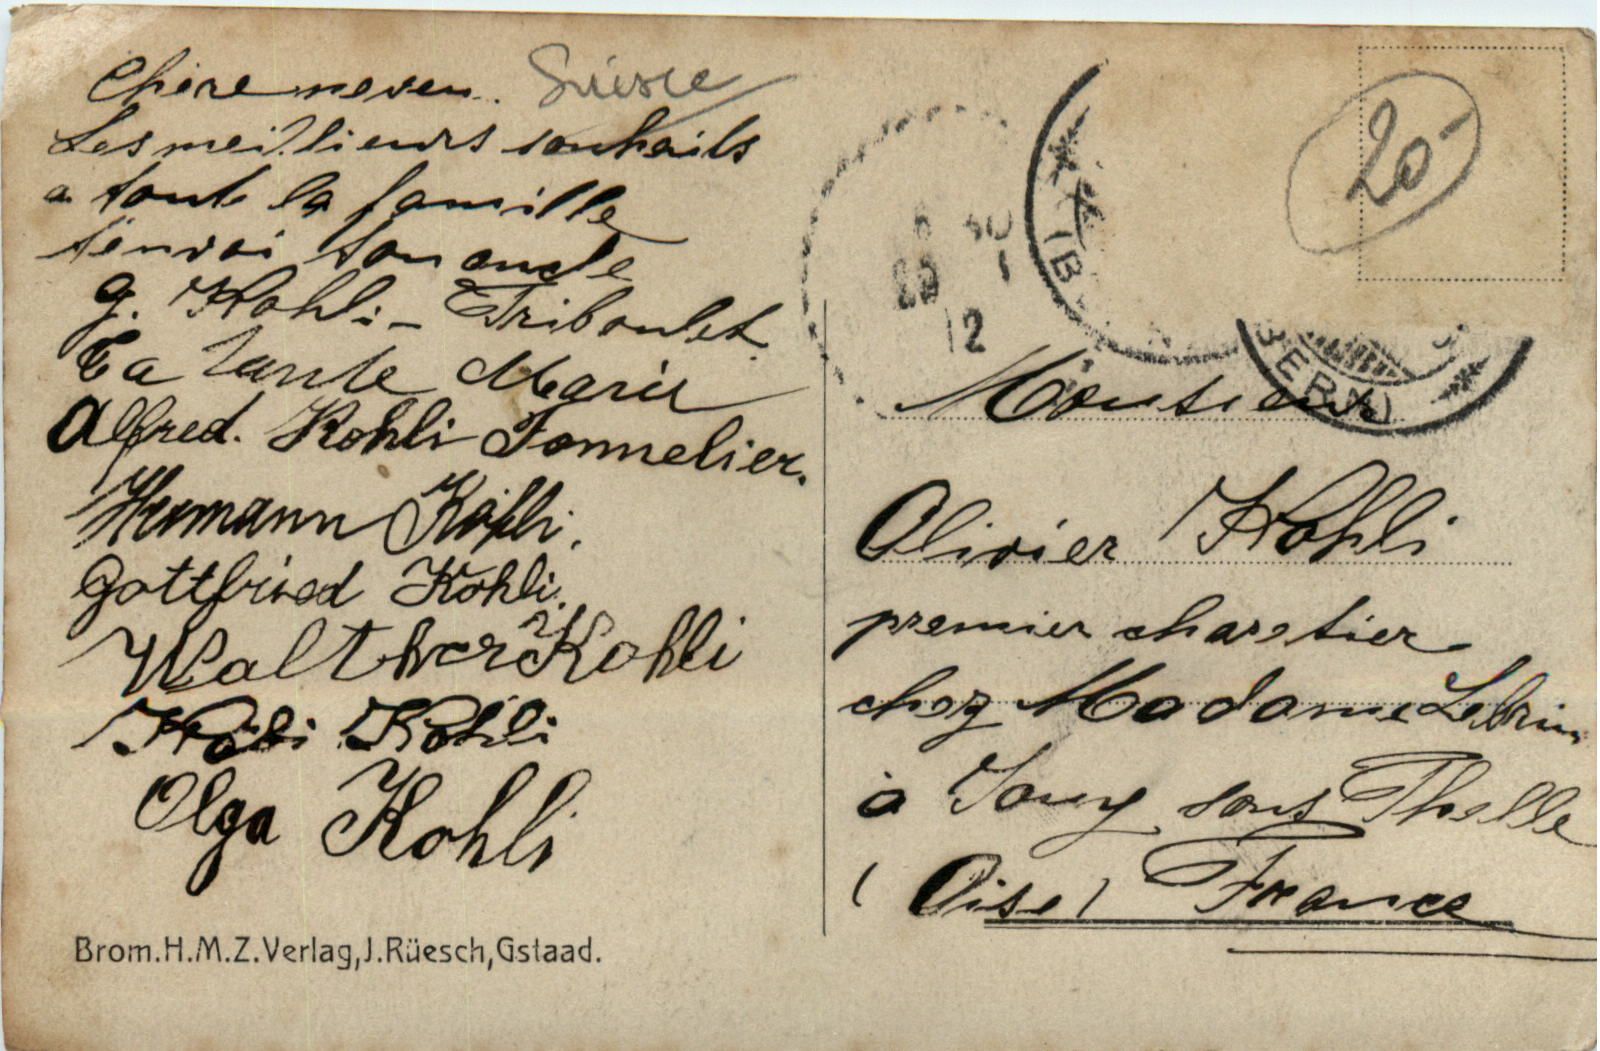 Chere neveu. Suisse
Les meillieurs souhaits
a toute la famille
tenvoi ton oncle
G. Kohli - Triboulet
Ta tante Marie
Alfred. Kohli Tonnelier.
Hermann Kohli.
Gottfried Kohli.
Walther Kohli
Kohli
Olga Kohli
Brom.H.M.Z.Verlag,J.Rüesch,Gstaad.
20-
12
(BERN)
Monsieur
Olivier Kohli
premier charetier
chez Madame
à Jouy sous Thelle
(Oise) France